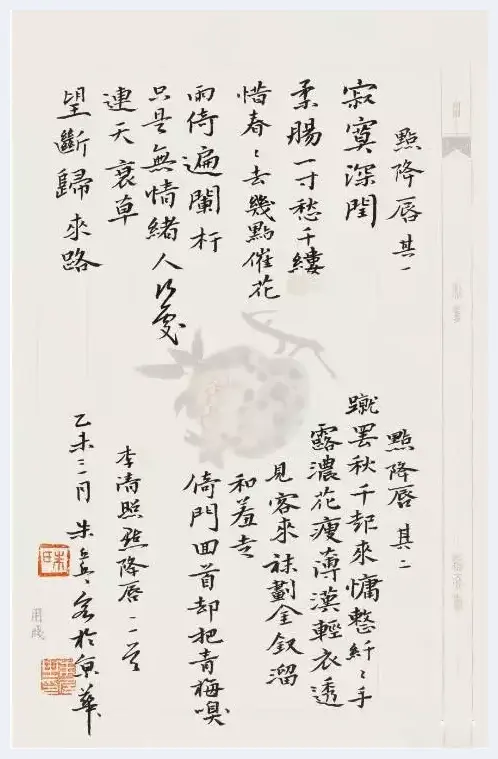 點降唇 其一
寂寞深閨
柔腸一寸愁千縷
惜春〻去幾點催花
雨倚遍闌杆
只是無情緒人何處
連天衰草
望斷歸來路
點降唇 其二
蹴罷秋千起來慵整纤〻手
露濃花瘦薄漢輕衣透
見客來袜劃金釵溜
和羞走
倚門回首却把青梅嗅
李清照點降唇二首
乙未二月 朱 客於京華